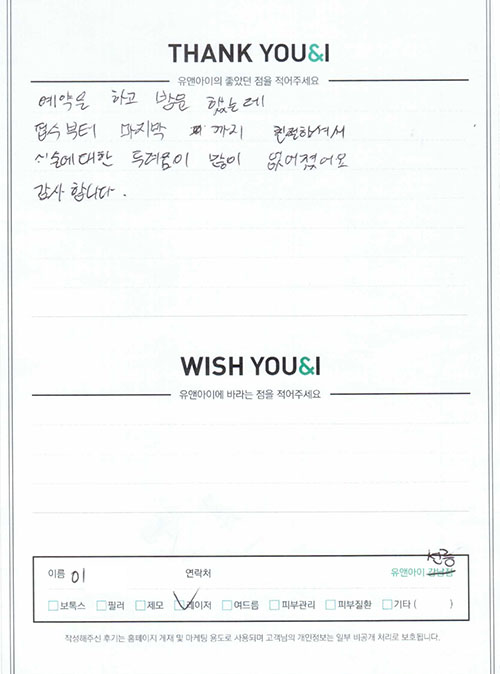 THANK YOU&I
유앤아이의 좋았던 점을 적어주세요
예약을 하고 방문 했는데
접수부터 마지막 까지 친절하셔서
시술에대한 두려움이 많이 없어졌어요
감사합니다.
WISH YOU&I
유앤아이에 바라는 점을 적어주세요
선릉
이름 이 연락처 유앤아이 강남점
보톡스 필러 제모 레이저 여드름 피부관리 피부질환 기타 ( )
작성해주신 후기는 홈페이지 게재 및 마케팅 용도로 사용되며 고객님의 개인정보는 일부 비공개 처리로 보호됩니다.